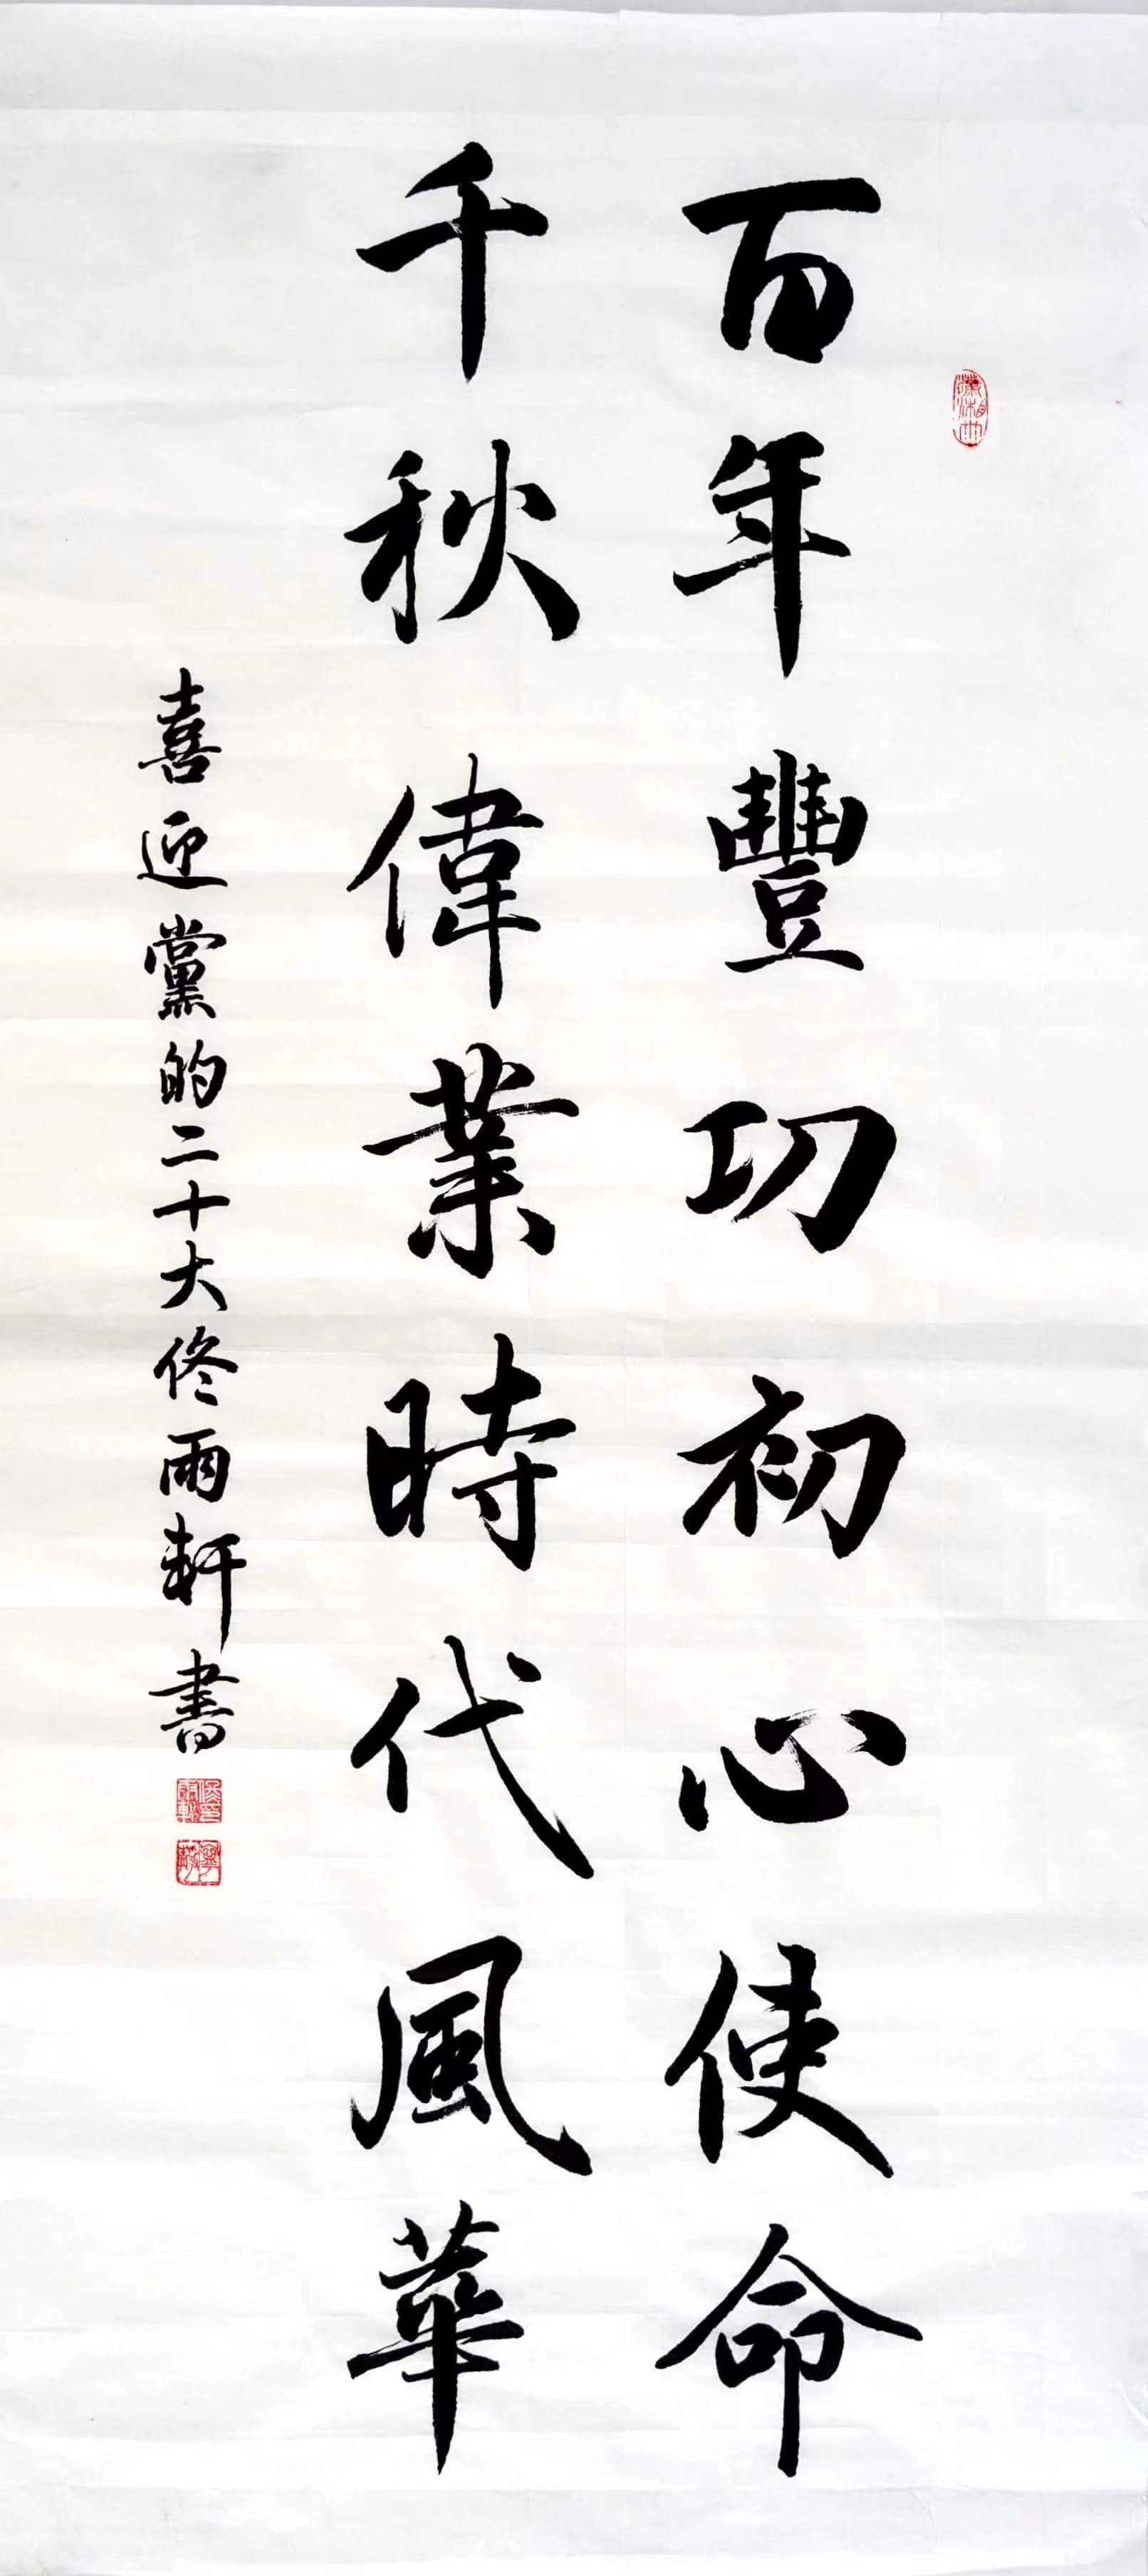 百年豐功初心使命
千秋偉業時代風華
喜迎黨的二十大佟雨軒書